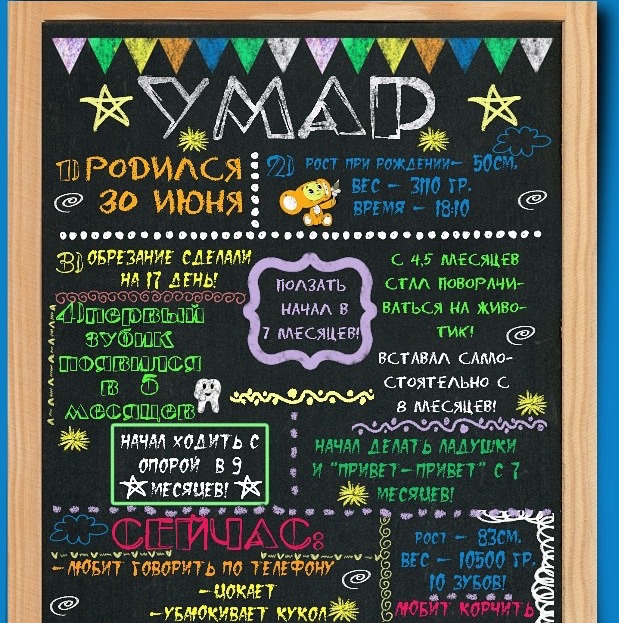 УМАР
1) РОДИЛСЯ
30 ИЮНЯ
2) РОСТ ПРИ РОЖДЕНИИ– 50СМ,
ВЕС – 3110 ГР.
ВРЕМЯ – 18:10
3) ОБРЕЗАНИЕ СДЕЛАЛИ
НА 17 ДЕНЬ!
ПОЛЗАТЬ
НАЧАЛ В
7 МЕСЯЦЕВ!
С 4,5 МЕСЯЦЕВ
СТАЛ ПОВОРАЧИ-
ВАТЬСЯ НА ЖИВО-
ТИК!
4) ПЕРВЫЙ
ЗУБИК
ПОЯВИЛСЯ
В 5
МЕСЯЦЕВ
ВСТАВАЛ САМО-
СТОЯТЕЛЬНО С
8 МЕСЯЦЕВ!
НАЧАЛ ХОДИТЬ С
ОПОРОЙ В 9
МЕСЯЦЕВ!
НАЧАЛ ДЕЛАТЬ ЛАДУШКИ
И "ПРИВЕТ-ПРИВЕТ" С 7
МЕСЯЦЕВ!
СЕЙЧАС:
– ЛЮБИТ ГОВОРИТЬ ПО ТЕЛЕФОНУ
–ЦОКАЕТ
–УБАЮКИВАЕТ КУКОЛ
РОСТ – 83СМ,
ВЕС – 10500 ГР,
10 ЗУБОВ!
ЛЮБИТ КОРЧИТЬ